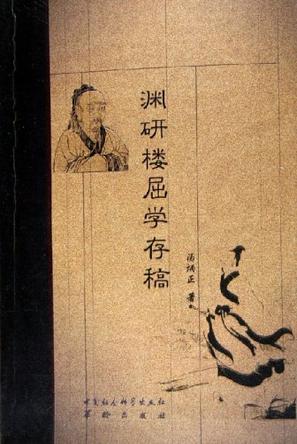 渊研楼屈学存稿
汤炳正 著
中国社会科学出版社
华龄出版社